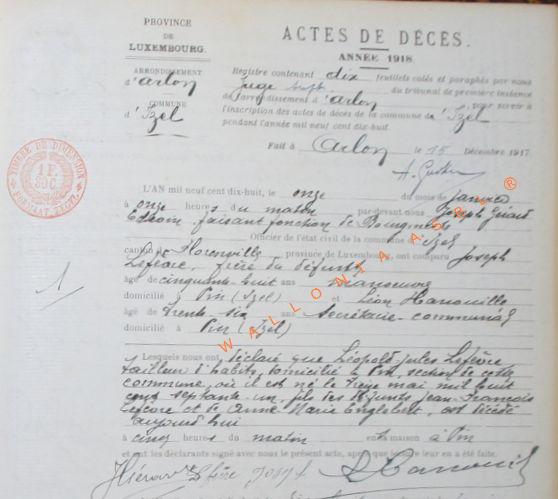 PROVINCE
DE
LUXEMBOURG.
ARRONDISSEMENT
d'Arlon
COMMUNE
d'Izel
ACTES DE DÉCÈS.
ANNÉE 1918.
Registre contenant dix feuillets cotés et paraphés par nous
Juge du tribunal de première instance
de l'arrondissement d'Arlon, pour servir à
l'inscription des actes de décès de la commune d'Izel
pendant l'année mil neuf cent dix-huit.
Fait à Arlon le 15 Décembre 1917.
TIMBRE DE DIMENSION
1 F.
1
L'AN mil neuf cent dix-huit, le onze du mois de janvier
à onze heures du matin par-devant nous Joseph
Echevin faisant fonction de Bourgmestre
Officier de l'état civil de la commune d'Izel
canton de Florenville, province de Luxembourg, ont comparu Joseph
Lefèvre, frère du défunt
âgé de cinquante huit ans manoeuvre
domicilié à Pin (Izel) et Léon Hanouille
âgé de trente six ans Secrétaire communal
domicilié à Pin (Izel)
Lesquels nous ont déclaré que Léopold Jules Lefèvre
tailleur d'habits, domicilié à Pin section de cette
commune, où il est né le mai mil huit
cent septante-un, fils des défunts Jean-François
Lefèvre et de Anne Marie Englebert, est décédé
aujourd'hui
à cinq heures du matin en sa maison à Pin
et ont les déclarants signé avec nous le présent acte, après que lecture leur en a été faite.
WALLONIA ASBL ®